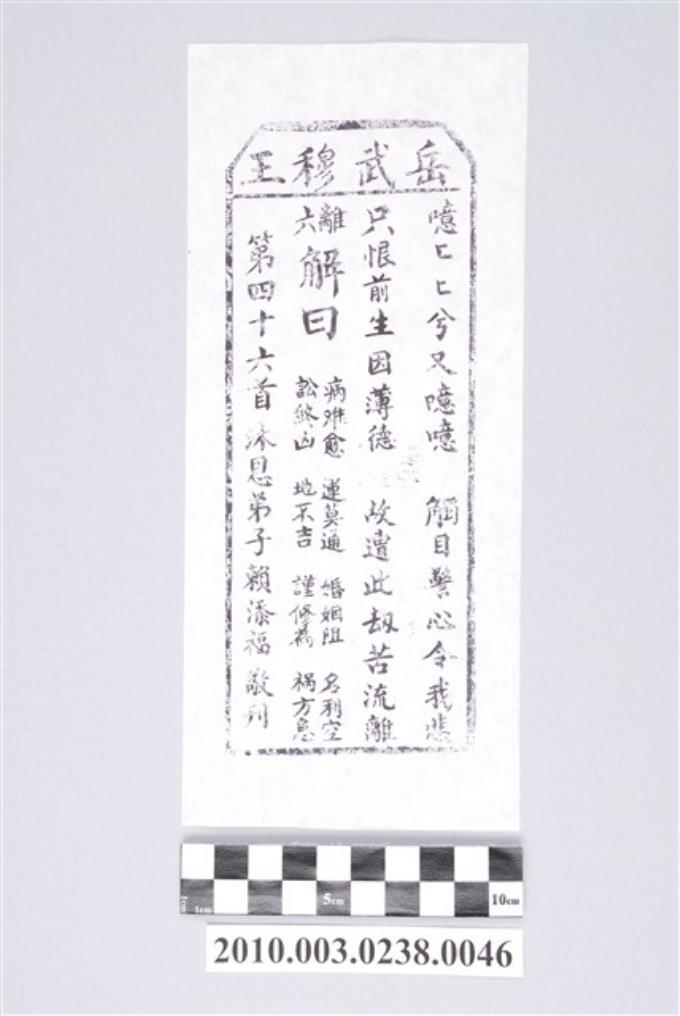 岳武穆王
噫匕匕兮又噫噫 觸目警心令我悲
只恨前生因薄德 故遭此劫苦流離
離六 解曰
病难愈 運莫通 婚姻阻 名利空
訟終凶 地不吉 謹修為 禍方息
第四十六首 沐恩弟子賴添福敬刊
5cm
10cm
1cm
2010.003.0238.0046